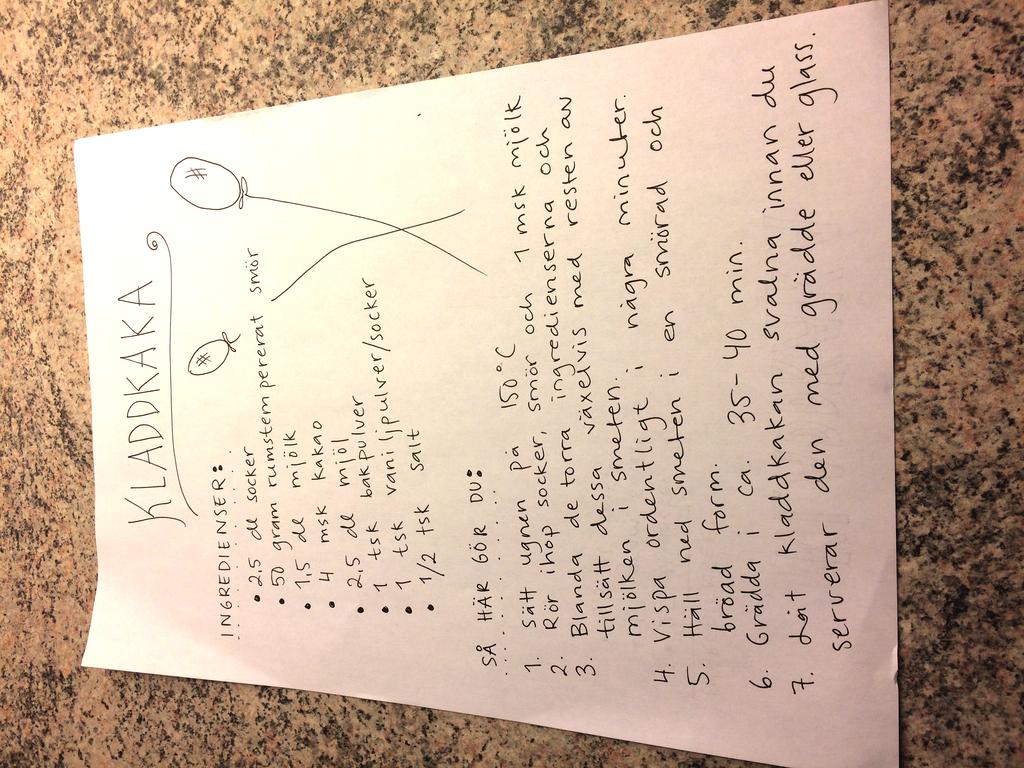 KLADDKAKA
INGREDIENSER:
• 2,5 dl socker
• 50 gram rumstempererat smör
• 1,5 dl mjölk
• 4 msk kakao
• 2,5 dl mjöl
• 1 tsk bakpulver
• 1 tsk vaniljpulver/socker
• 1/2 tsk salt
#
#
SÅ HÄR GÖR DU:
1. Sätt ugnen på 150°C
2. Rör ihop socker, smör och 1 msk mjölk
3. Blanda de torra ingredienserna och
tillsätt dessa växelvis med resten av
mjölken i smeten.
4. Vispa ordentligt i några minuter.
5. Häll ned smeten i en smörad och
bröad form.
6. Grädda i ca. 35-40 min.
7. Låt kladdkakan svalna innan du
serverar den med grädde eller glass.